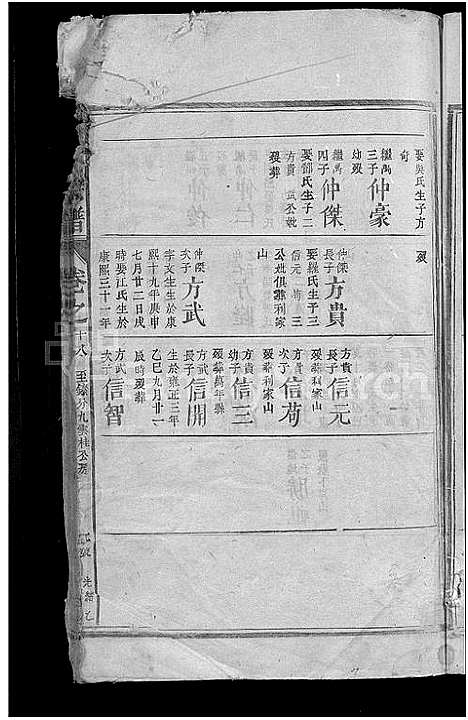 娶吳氏生子方
奇
繼萬
三子 仲豪
幼歿
繼萬
四子 仲傑
娶鄧氏生子二
方貴 武公妣
歿葬
歿
仲傑
長子 方貴
娶羅氏生子三
信元 三
公妣俱葬利家
山
仲傑
次子 方武
字文生生於康
熙十九年庚申
七月廿二日戌
時娶江氏生於
康熙三十一年
方貴
長子 信元
歿葬利家山
方貴
次子 信苟
歿葬利家山
方貴
幼子 信三
歿葬萬年縣
方武
長子 信開
生於雍正三年
乙巳九月廿一
辰時歿葬
方武
次子 信智
譜
卷之十八